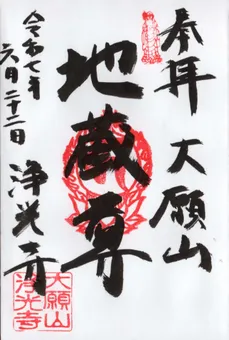 奉拝 大願山
地蔵尊
令和七年
六月二十二日
浄光寺
大願山
浄光寺